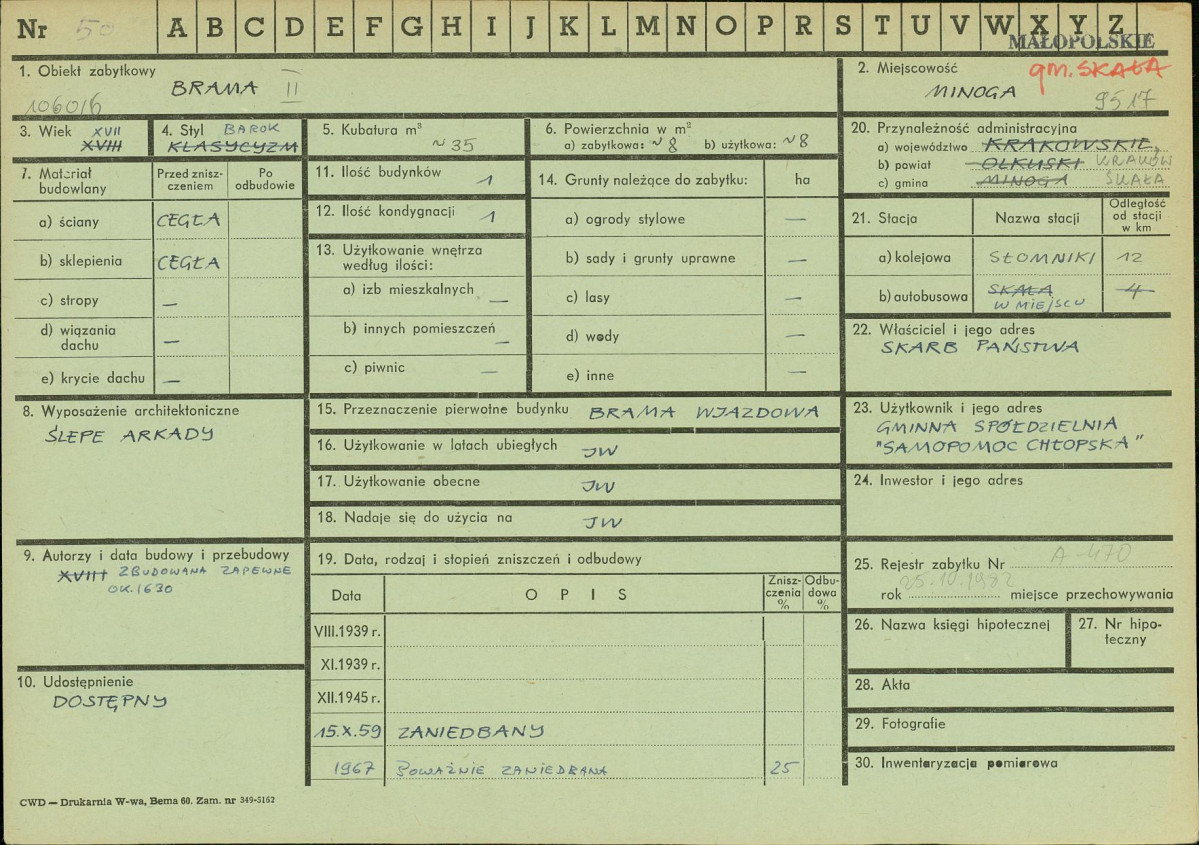 Nr 50 A B C D E F G H I J K L M N O P R S T U V W X Y Z
MAŁOPOLSKIE
1. Obiekt zabytkowy
BRAMA II
1060/6
2. Miejscowość
gm. SKAŁA
MINOGA
9517
3. Wiek XVII
XVIII
4. Styl BAROK
KLASYCYZM
5. Kubatura m³
~35
6. Powierzchnia w m²
a) zabytkowa: ~8 b) użytkowa: ~8
20. Przynależność administracyjna
a) województwo KRAKOWSKIE,
b) powiat OLKUSKI KRAKÓW
c) gmina MINOGA SKAŁA
7. Materiał budowlany
Przed zniszczeniem
Po odbudowie
a) ściany CEGŁA
b) sklepienia CEGŁA
c) stropy —
d) wiązania dachu —
e) krycie dachu —
11. Ilość budynków 1
12. Ilość kondygnacji 1
13. Użytkowanie wnętrza
według ilości:
a) izb mieszkalnych —
b) innych pomieszczeń —
c) piwnic —
14. Grunty należące do zabytku: ha
a) ogrody stylowe —
b) sady i grunty uprawne —
c) lasy —
d) wody —
e) inne —
21. Stacja
Nazwa stacji
Odległość
od stacji
w km
a) kolejowa SŁOMNIKI 12
b) autobusowa SKAŁA 4
W MIEJSCU
22. Właściciel i jego adres
SKARB PAŃSTWA
8. Wyposażenie architektoniczne
ŚLEPE ARKADY
15. Przeznaczenie pierwotne budynku BRAMA WJAZDOWA
16. Użytkowanie w latach ubiegłych JW
17. Użytkowanie obecne JW
18. Nadaje się do użycia na JW
23. Użytkownik i jego adres
GMINNA SPÓŁDZIELNIA
"SAMOPOMOC CHŁOPSKA"
24. Inwestor i jego adres
9. Autorzy i data budowy i przebudowy
XVIII ZBUDOWANA ZAPEWNE
OK. 1630
10. Udostępnienie
DOSTĘPNY
19. Data, rodzaj i stopień zniszczeń i odbudowy
Data
OPIS
Znisz-
czenia
%
Odbu-
dowa
%
VIII.1939 r.
XI.1939 r.
XII.1945 r.
15.X.59 ZANIEDBANY
1967 POWAŻNIE ZANIEDBANA 25
25. Rejestr zabytku Nr A-470
rok 25.10.1982 miejsce przechowywania
26. Nazwa księgi hipotecznej
27. Nr hipo-
teczny
28. Akta
29. Fotografie
30. Inwentaryzacja pomiarowa
CWD — Drukarnia W-wa, Bema 60. Zam. nr 349-5162